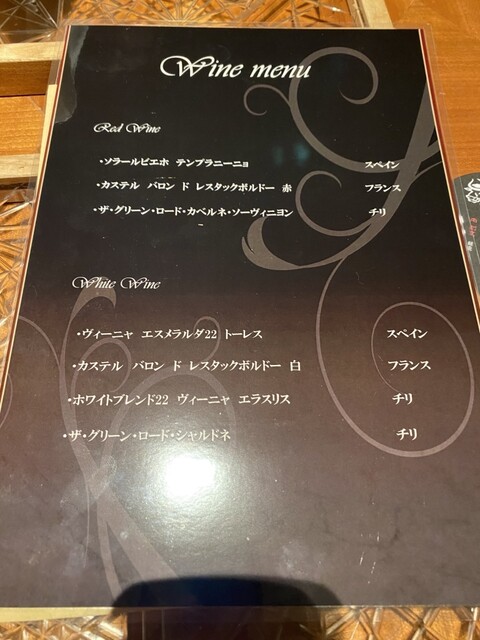 Wine menu
Red Wine
・ソラールビエホ テンプラニーニョ スペイン
・カステル バロン ド レスタックボルドー 赤 フランス
・ザ・グリーン・ロード・カベルネ・ソーヴィニヨン チリ
White Wine
・ヴィーニャ エスメラルダ22 トーレス スペイン
・カステル バロン ド レスタックボルドー 白 フランス
・ホワイトブレンド22 ヴィーニャ エラスリス チリ
・ザ・グリーン・ロード・シャルドネ チリ